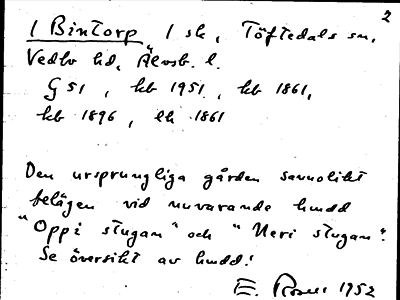 2
1 Bintorp 1 sk, Töftedals sn,
Vedbo hd, Älvsb. l.
G 51 , kb 1951 , kb 1861,
kb 1896 , lk 1861
Den ursprungliga gården sannolikt
belägen vid nuvarande husdd
"Oppi stugan" och "Neri stugan".
Se översikt av husdd!
E. 1952